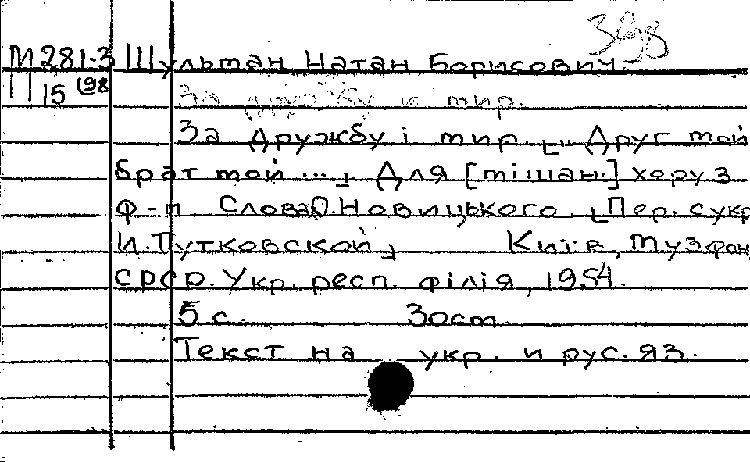 398
М 281-3 Шульман Натан Борисович
II 15 (98 За дружбу и мир.
За дружбу і мир. [„Друг мой
брат мой ..."] Для [мішан.] хору з
ф-п Слова О. Новицького. [Пер. с укр
И. Тутковской] Київ, Музфон
СРСР. Укр. респ. філія, 1954.
5 с. 30 см
Текст на укр. и рус. яз.